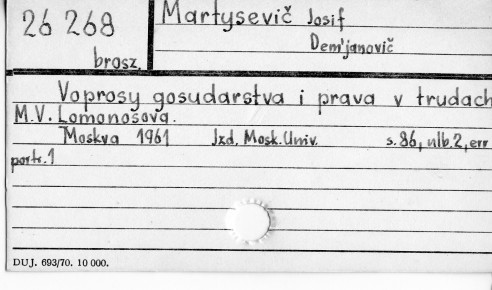 26 268
brosz.
Martysevič Josif
Dem'janovič
Voprosy gosudarstva i prava v trudach
M.V. Lomonosova.
Moskva 1961 Izd. Mosk. Univ. s. 86, nlb. 2, err
portr. 1
DUJ. 693/70. 10 000.